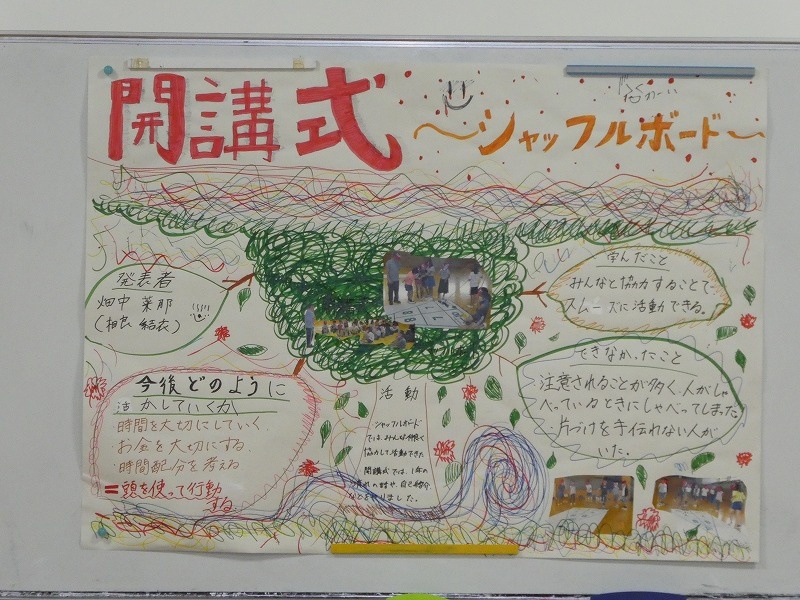 開講式
~シャッフルボード~
発表者
畑中 菜那
(相良 結衣)
学んだこと
みんなと協力することで
スムーズに活動できる。
できなかったこと
・注意されることが多く、人がしゃ
べっているときにしゃべってしまった
・片づけを手伝れない人が
いた。
今後どのように
活かしていくか
・時間を大切にしていく
・お金を大切にする
・時間配分を考える
=頭を使って行動
する
活動
シャッフルボード
では、みんな仲良く
協力して活動できた
開講式では、1年の
流れの話や、自己紹介
などをやりました。